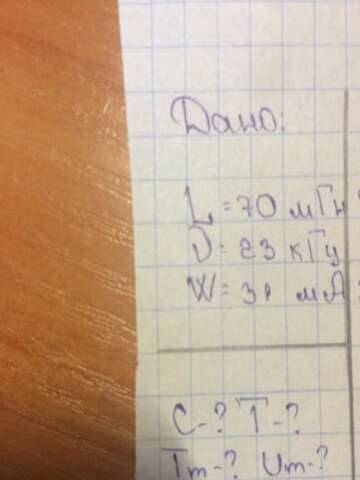 Дано:
L = 70 мГн
ν = 23 кГц
W = 31 мА
C-? T-?
Im-? Um-?